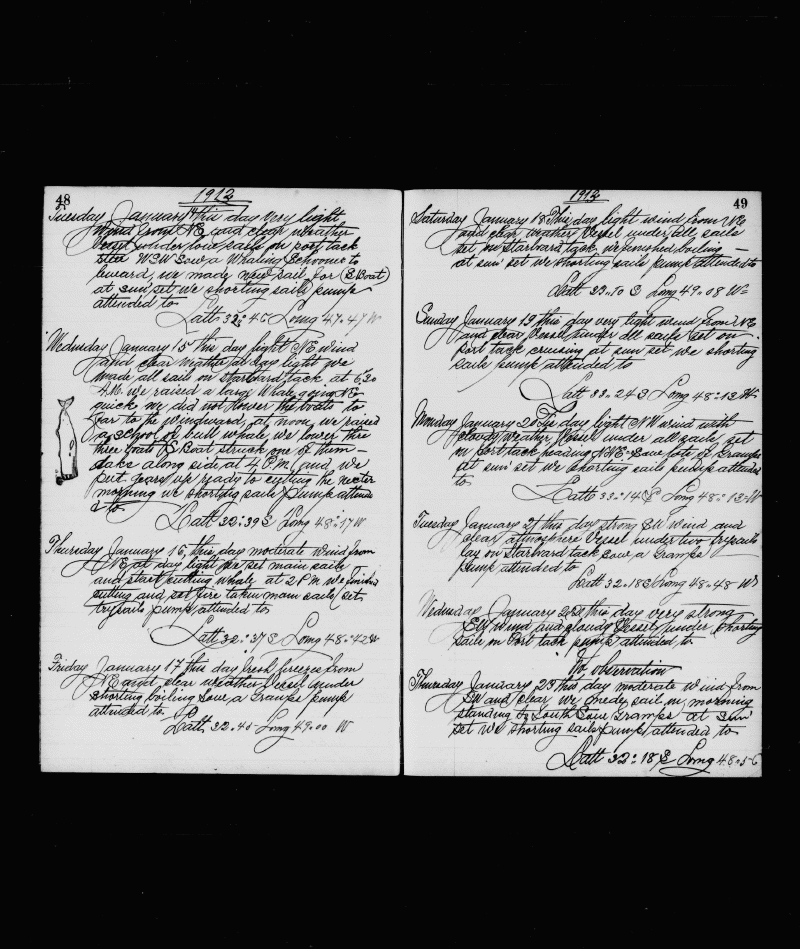 48
1913
Tuesday January 14 this day very light
wind from NE and clear weather
Vessel under low sails on port tack
steer WSW Saw a Whaling Schooner to
leward, we made new sail for S Boat
at sun set we shorting sails pump
attended to
Latt 32:45 Long 47.47 W
Wednesday January 15 this day light NE wind
and clear weather at day light we
made all sail on starbard tack at 6.30
A.M. we raised a large Whale going NE
quick we did not lower the boats to
far to the windward, at noon we raised
a School of bull whale we lower thre
three boats S Boat struck one of them
take along side at 4 P.M. and we
put gears up ready to cutting the nexter
morning we shorting sails pump attende
d to
Latt 32:39 S Long 48:17 W
Thursday January 16, this day moderate wind from
NE at day light we set main sails
and start cutting whale at 2 P M we finished
cutting and set fire taken main sails set
trysails pump attended to
Latt 32:37 S Long 48:42 W
Friday January 17 this day fresh breezes from
NE and clear weather Vessel under
shorting boiling Saw a Gramps pump
attended to
Latt 32.45 Long 49.00 W
1913
49
Saturday January 18 This day light wind from NE
and clear weather Vessel under all sails
set on starbard tack we finished boiling
at sun set we shorting sails pump attended to
Latt 33.10 S Long 49.08 W
Sunday January 19 this day very light wind from NE
and clear Vessel under all sails set on
port tack cruising at sun set we shorting
sails pump attended to
Latt 33.24 S Long 48:13 W
Monday January 20 This day light NW wind with
cloudy weather Vessel under all sails set
on port tack heading NNE Saw lots of Gramps
at sun set we shorting sails pump attended
to
Latt 33:14 S Long 48:13 W
Tuesday January 21 this day strong SW wind and
clear atmosphere Vessel under two trysails
lay on starbard tack Saw a Gramps
pump attended to
Latt 32.18 S Long 48.48 W
Wednesday January 22 this day very strong
SW wind and cloudy Vessel under shorting
sails on Port tack pump attended to
No observation
Thursday January 23 this day moderate wind from
SW and clear we made sail in morning
standing to South Saw Gramps at sun
set we shorting sails pump attended to
Latt 32:18 S Long 48.56